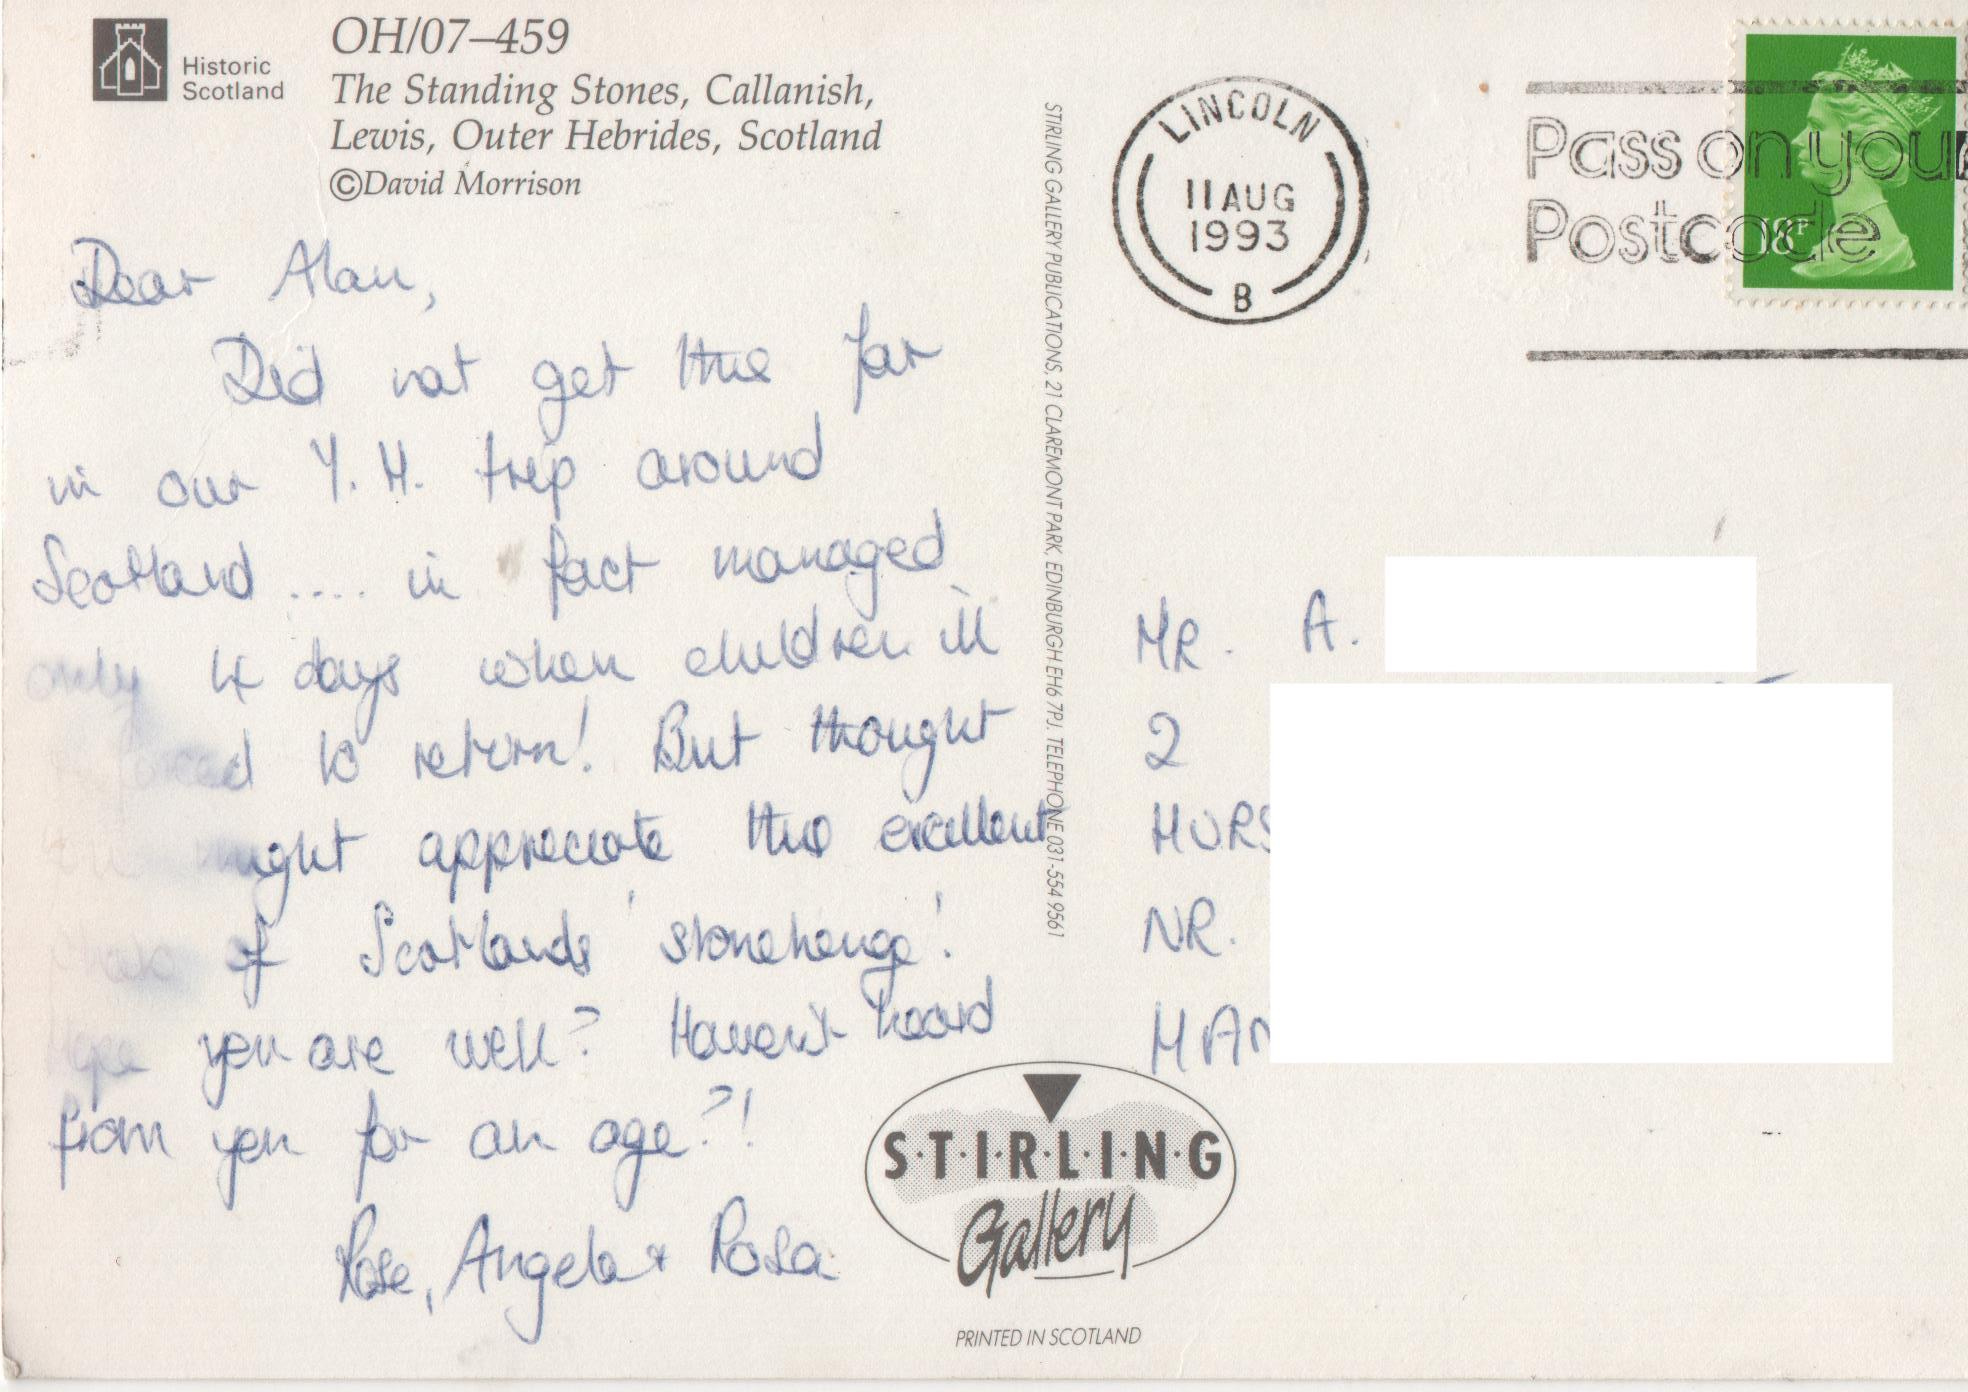 Historic
Scotland
OH/07–459
The Standing Stones, Callanish,
Lewis, Outer Hebrides, Scotland
©David Morrison
Dear Alan,
Did not get this far
in our Y.H. trip around
Scotland .... in fact managed
only 4 days when children ill
& forced to return! But thought
you might appreciate this excellent
of Scotlands 'stonehenge'!
Hope you are well? Haven't heard
from you for an age?!
Rose, Angela & Rosa
STIRLING GALLERY PUBLICATIONS, 21 CLAREMONT PARK, EDINBURGH EH6 7PJ. TELEPHONE 031-554 9561
LINCOLN
11 AUG
1993
B
Pass on your
Postcode
18P
MR. A.
2
NR.
S·T·I·R·L·I·N·G
Gallery
PRINTED IN SCOTLAND